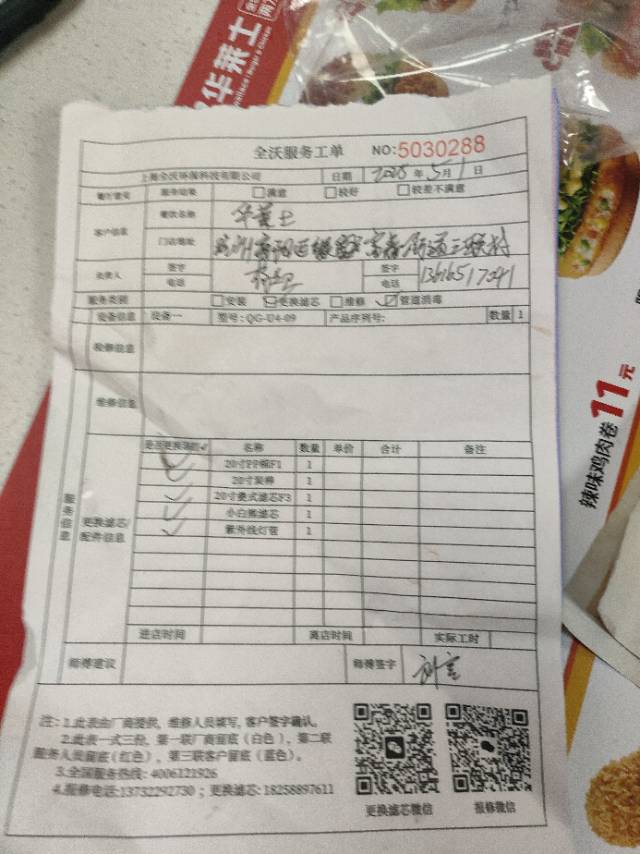 华莱士
全沃服务工单 NO:5030288
上海全沃环保科技有限公司 日期 年 5月1日
服务结果 满意 较好 较差不满意
客户信息 餐饮名称 华莱士
门店地址 富春街道三联村
负责人 签字 签字
电话 电话 13616517041
服务类别 安装 更换滤芯 维修 管道消毒
设备信息 设备一 型号:QG-U4-09 产品序列号: 数量 1
检修信息
维修信息
服务信息
更换滤芯/配件信息
名称 数量 单价 合计 备注
20寸PP棉F1 1
20寸炭棒 1
20寸 滤芯F3 1
小白熊滤芯 1
紫外线灯管 1
进店时间 离店时间 实际工时
师傅建议 师傅签字
注: 1.此表由厂商提供, 维修人员填写, 客户签字确认。
2.此表一式三份, 第一联厂商留底(白色), 第二联
服务人员留底(红色), 第三联客户留底(蓝色)。
3.全国服务热线: 4006121926
4.报修电话:13732292730 ; 更换滤芯: 18258897611
更换滤芯微信 报修微信
辣味鸡肉卷 11元